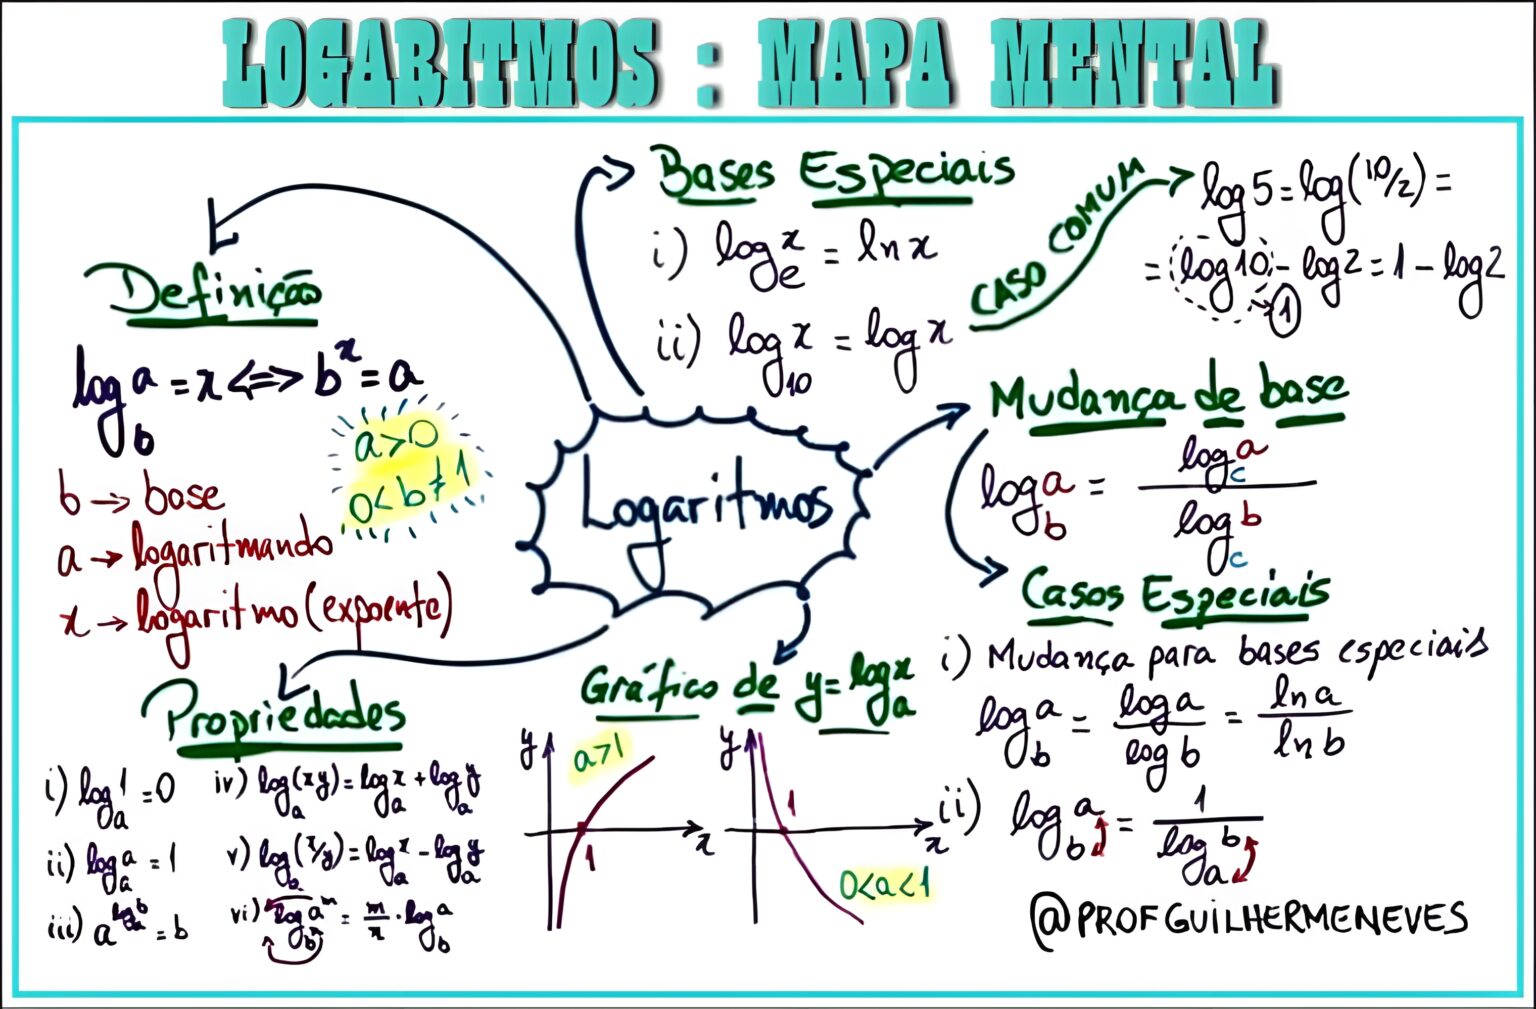 LOGARITMOS : MAPA MENTAL
Definição
log_b a = x <=> b^x = a
a > 0
0 < b ≠ 1
b → base
a → logaritmando
x → logaritmo (expoente)
Bases Especiais
i) log_e x = ln x
ii) log_10 x = log x
CASO COMUM
log 5 = log(10/2) =
= log 10 - log 2 = 1 - log 2
1
Logaritmos
Mudança de base
log_b a = log_c a / log_c b
Casos Especiais
i) Mudança para bases especiais
log_b a = log a / log b = ln a / ln b
ii) log_b a = 1 / log_a b
Propriedades
i) log_a 1 = 0
ii) log_a a = 1
iii) a^(log_a b) = b
iv) log_a (xy) = log_a x + log_a y
v) log_a (x/y) = log_a x - log_a y
vi) log_(b^n) a^m = m/n · log_b a
Gráfico de y = log_a x
y
a > 1
1
x
y
1
x
0 < a < 1
@PROFGUILHERMENEVES